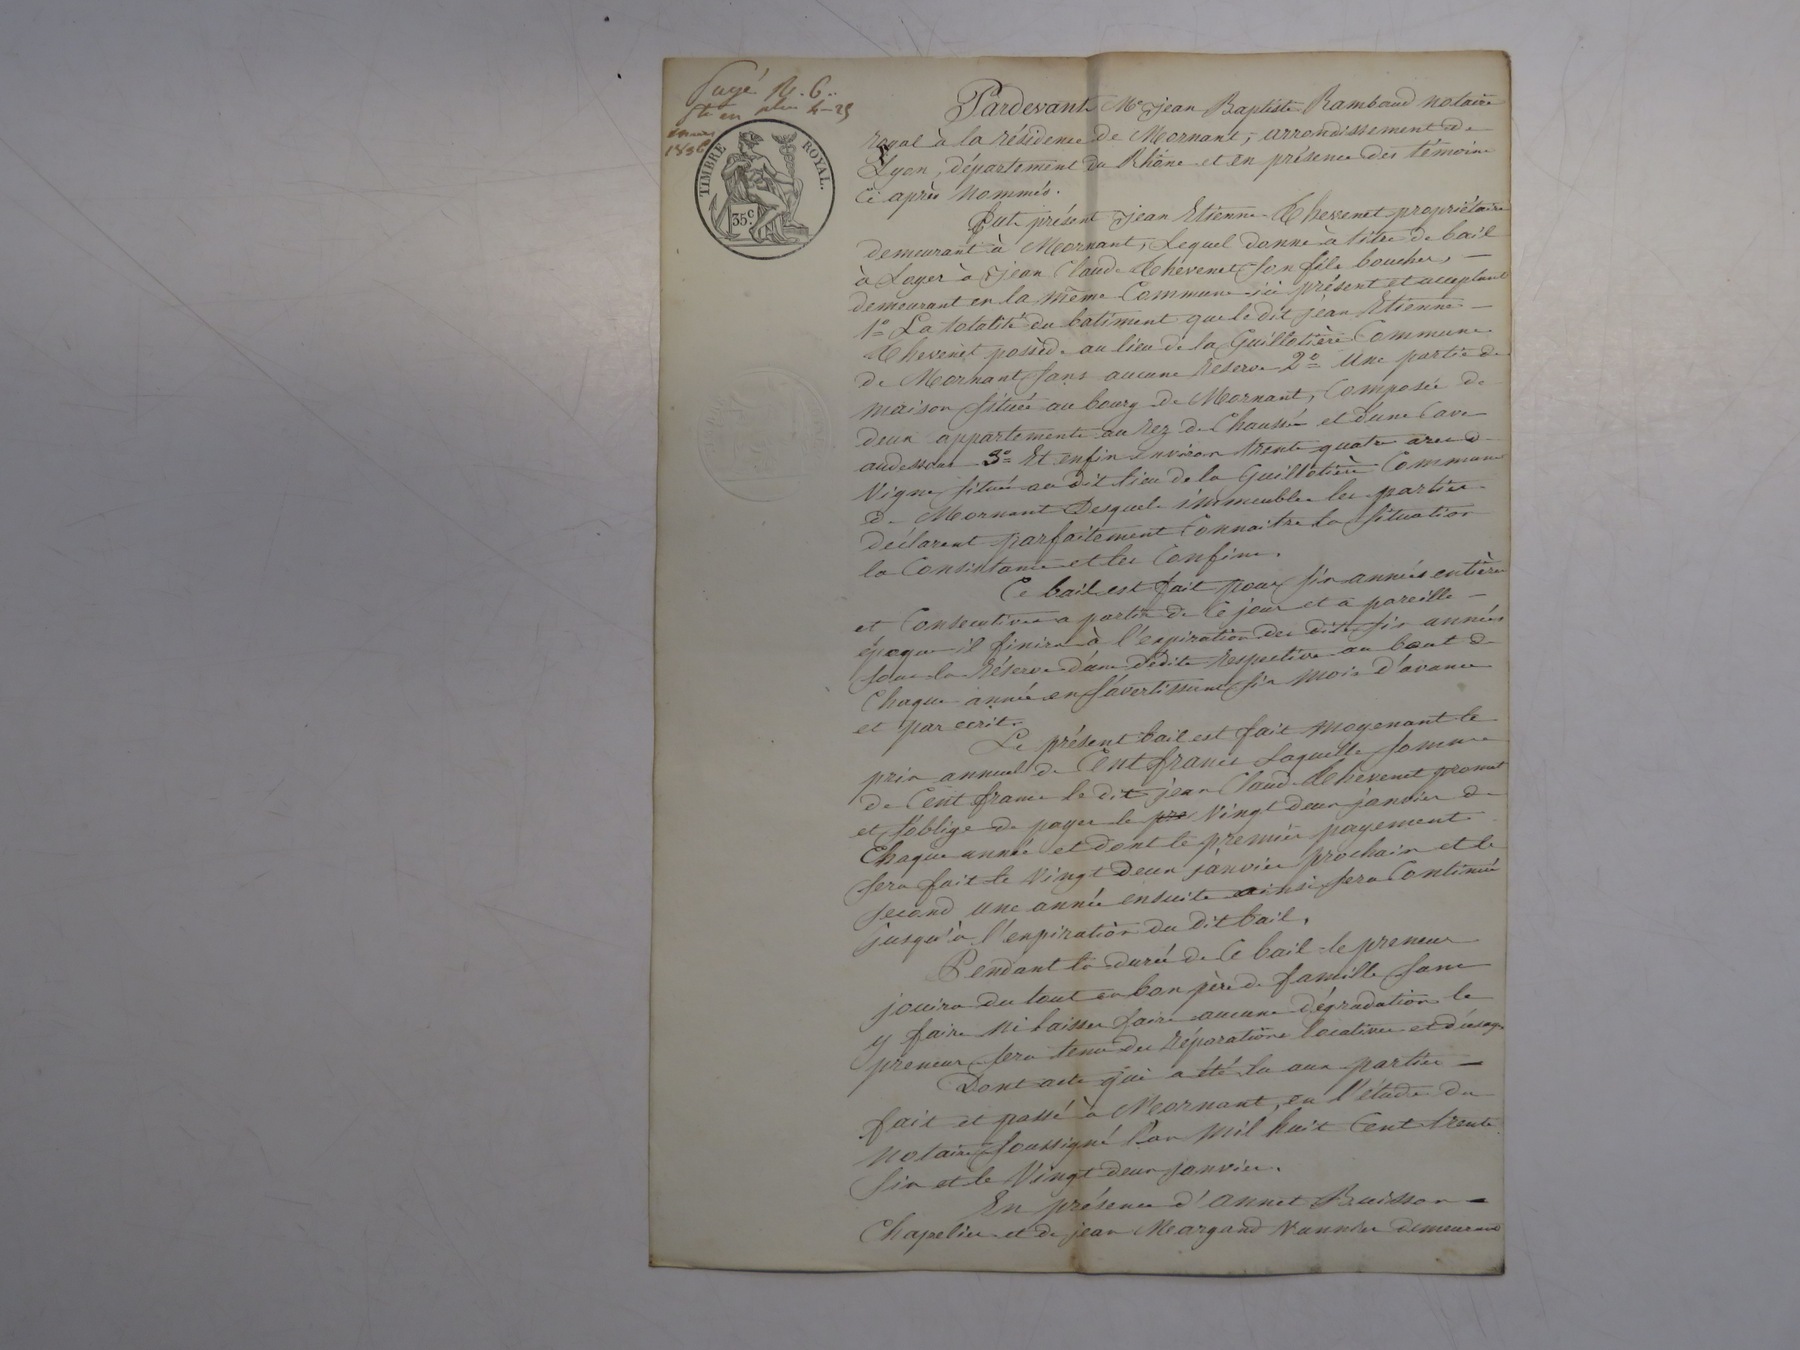 TIMBRE ROYAL.
35 c
Pardevant Me jean Baptiste Rambaud notaire
royal à la résidence de Mornant, arrondissement de
Lyon, département du Rhône et en présence des témoins
ci après nommés.
fut présent jean Etienne Thevenet propriétaire
demeurant à Mornant, Lequel donne à titre de bail
à Loyer à jean Claude Thevenet son fils boucher, —
demeurant en la même Commune ici présent et acceptant
1º La totalité du batiment que le dit jean Etienne —
Thevenet possède au lieu de la Guillotière Commune
de Mornant sans aucune Réserve 2º Une partie de
maison située au bourg de Mornant, Composée de
deux appartements au Rez de Chaussée et d'une Cave
audessous 3º Et enfin environ trente quatre ares de
Vigne située au dit lieu de la Guillotière Commune
de Mornant Desquels immeubles les parties
déclarent parfaitement Connaitre la situation
la Consistance et les Confins.
Ce bail est fait pour six années entières
et Consecutives a partir de Ce jour et a pareille —
époque il finira à l'expiration des dites six années
sous la Réserve d'une dédite Respective au bout de
Chaque année en s'avertissant six mois d'avance
et par ecrit.
Le présent bail est fait moyenant le
prix annuel de Cent francs Laquelle somme
de Cent francs le dit jean Claude Thevenet promet
et s'oblige de payer le Vingt deux janvier de
Chaque année et dont le premier payement
sera fait le Vingt deux janvier prochain et le
second une année ensuite ainsi sera Continué
jusqu'à l'expiration du dit bail.
Pendant la durée de Ce bail le preneur
jouira du tout en bon père de famille sans
y faire Ni laisser faire aucune dégradation le
preneur sera tenu des Réparations locatives et d'usage
Dont acte qui a été lu aux parties —
fait et passé à Mornant, en l'étude du
Notaire soussigné l'an Mil huit Cent trente
six et le Vingt deux janvier.
En présence d'annet Buisson —
Chapelier et de jean Margand Vannier demeurant